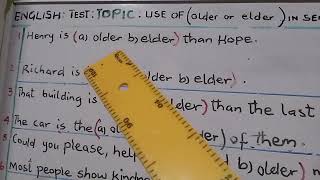 ENGLISH: TEST: TOPIC: USE OF (older or elder) IN SEN
1 Henry is (a) older b) elder) than Hope.
2 Richard is older b) elder).
3 That building is elder) than the last
4 The car is the (a) older of them.
5 Could you please, help b) older)
6 Most people show kindn